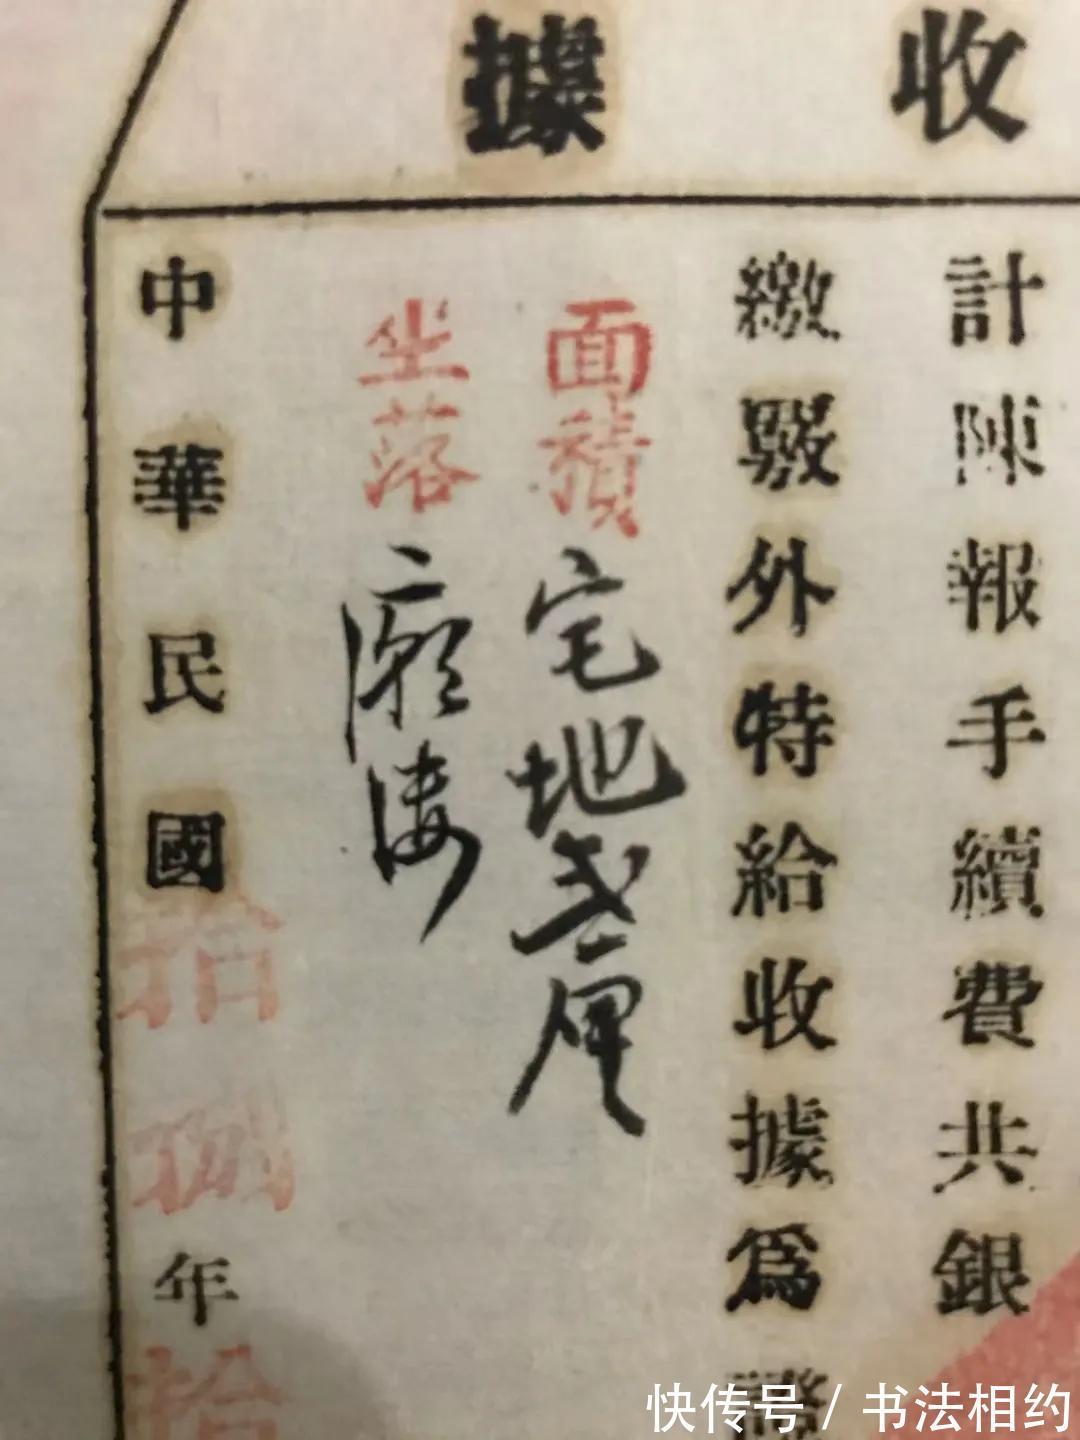 收據
計陳報手續費共銀
繳驗外特給收據爲證
面積宅地壹厘
坐落廟後
中華民國拾捌年拾
快传号/书法相约